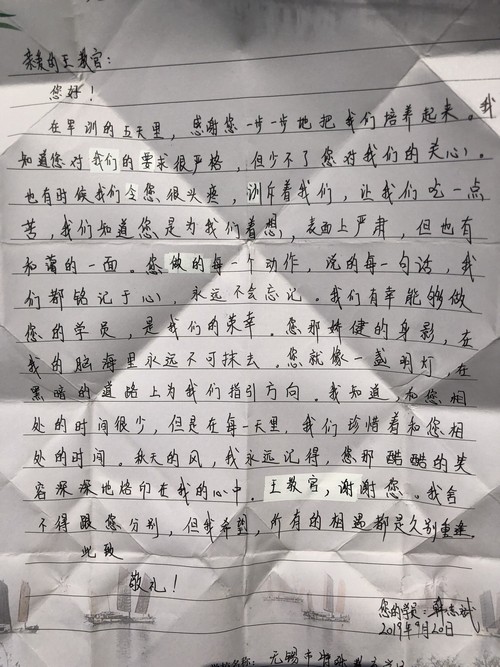 亲爱的王教官：
您好！
在军训的五天里，感谢您一步一步地把我们培养起来。我
知道您对我们的要求很严格，但少不了您对我们的关心。
也有时候我们令您很头疼，训斥着我们，让我们吃一点
苦，我们知道您是为我们着想，表面上严肃，但也有
和蔼的一面。您做的每一个动作，说的每一句话，我
们都铭记于心，永远不会忘记。我们有幸能够做
您的学员，是我们的荣幸。您那矫健的身影，在
我的脑海里永远不可抹去。您就像一盏明灯，在
黑暗的道路上为我们指引方向。我知道，和您相
处的时间很少，但是在每一天里，我们珍惜着和您相
处的时间。秋天的风，我永远记得，您那酷酷的笑
容深深地烙印在我的心中。王教官，谢谢您。我舍
不得跟您分别，但我希望，所有的相遇都是久别重逢。
此致
敬礼！
您的学员：
2019年9月20日
名称： 无锡市